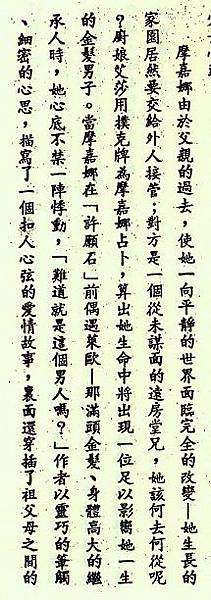 摩嘉娜由於父親的過去，使她一向平靜的世界面臨完全的改變—她生長的
家園居然要交給外人接管；對方是一個從未謀面的遠房堂兄，她該何去何從呢
？廚娘艾莎用撲克牌為摩嘉娜占卜，算出她生命中將出現一位足以影響她一生
的金髮男子。當摩嘉娜在「許願石」前偶遇萊歐—那滿頭金髮、身體高大的繼
承人時，她心底不禁一陣悸動，「難道就是這個男人嗎？」作者以靈巧的筆觸
、細密的心思，描寫了一個扣人心弦的愛情故事，裏面還穿插了祖父母之間的